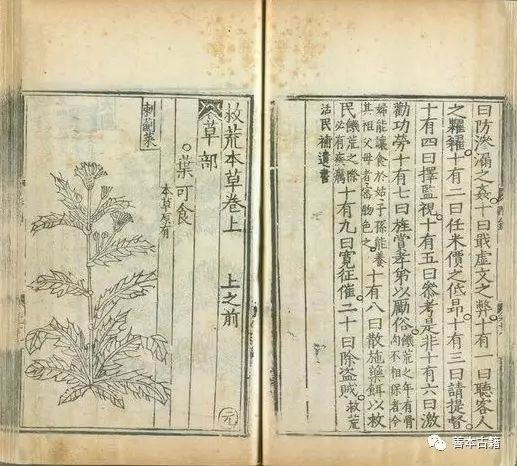 曰防滲漏之姦十曰戢虛文之弊十有一曰聽客人
之糶糴十有二曰任米價之低昂十有三曰請提督
十有四曰擇監視十有五曰參考是非十有六曰激
勸功勞十有七曰旌賞孝弟以勵俗饑荒之年有骨肉不相保者令
婦能讓食於姑子孫能養其祖父母者當物色之十有八曰散施藥餌以救
民饑荒之際必有疾癘十有九曰寬征催二十曰除盜賊救荒
活民補遺書
救荒本草卷上 上之前
草部
葉可食
本草原有
刺薊菜
元
善本古籍